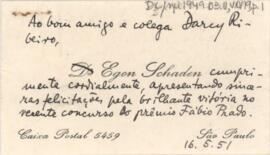 Ao bom amigo e colega Darcy Ri-
beiro,
Dr Egon Schaden cumpri-
menta cordialmente, apresentando since-
ras felicitações pela brilhante vitória no
recente concurso do prêmio Fábio Prado.
Caixa Postal 5459 São Paulo
16.5.51